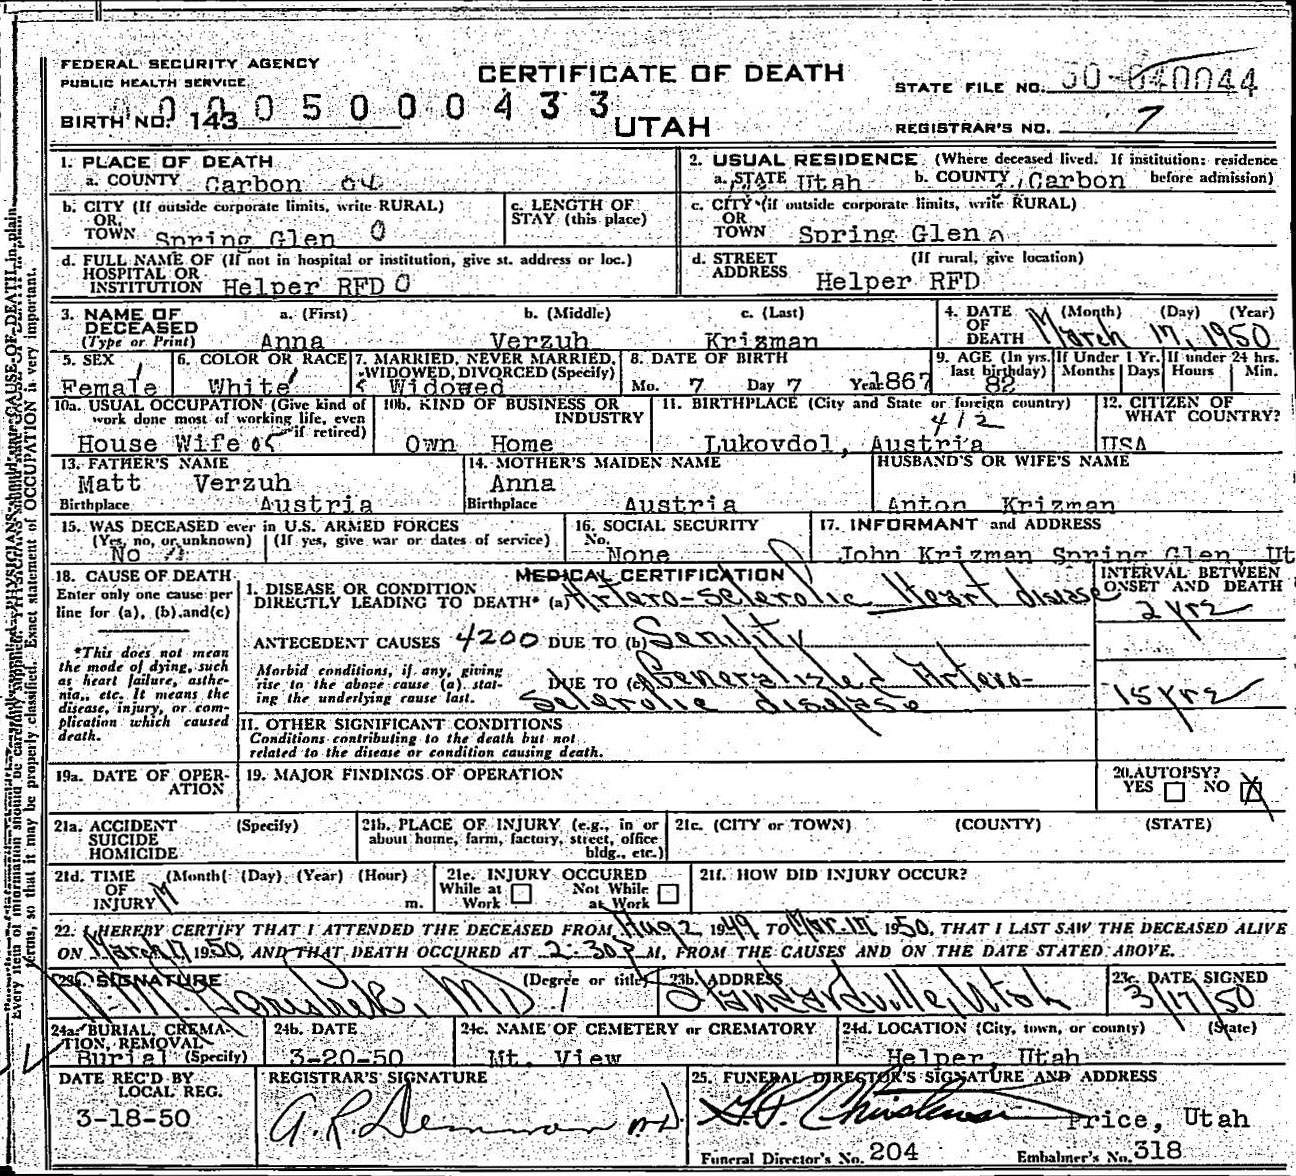 FEDERAL SECURITY AGENCY
PUBLIC HEALTH SERVICE
CERTIFICATE OF DEATH
STATE FILE NO.
00005000433
BIRTH NO. 143
UTAH
REGISTRAR'S NO. 7
1. PLACE OF DEATH
a. COUNTY Carbon 04
2. USUAL RESIDENCE (Where deceased lived. If institution: residence before admission)
a. STATE Utah b. COUNTY Carbon
b. CITY (If outside corporate limits, write RURAL)
OR
TOWN Spring Glen 0
c. LENGTH OF
STAY (this place)
c. CITY (if outside corporate limits, write RURAL)
OR
TOWN Spring Glen
d. FULL NAME OF (If not in hospital or institution, give st. address or loc.)
HOSPITAL OR
INSTITUTION Helper RFD 0
d. STREET (If rural, give location)
ADDRESS Helper RFD
3. NAME OF
DECEASED
(Type or Print)
a. (First) b. (Middle) c. (Last)
Anna Verzuh Krizman
4. DATE (Month) (Day) (Year)
OF
DEATH March 17, 1950
5. SEX
Female
6. COLOR OR RACE
White
7. MARRIED, NEVER MARRIED,
WIDOWED, DIVORCED (Specify)
Widowed
8. DATE OF BIRTH
Mo. 7 Day 7 Year 1867
9. AGE (In yrs. last birthday)
82
If Under 1 Yr.
Months Days
If under 24 hrs.
Hours Min.
10a. USUAL OCCUPATION (Give kind of
work done most of working life, even
if retired)
House Wife 05
10b. KIND OF BUSINESS OR
INDUSTRY
Own Home
11. BIRTHPLACE (City and State or foreign country)
412
Lukovdol, Austria
12. CITIZEN OF
WHAT COUNTRY?
USA
13. FATHER'S NAME
Matt Verzuh
Birthplace Austria
14. MOTHER'S MAIDEN NAME
Anna
Birthplace Austria
HUSBAND'S OR WIFE'S NAME
Anton Krizman
15. WAS DECEASED ever in U.S. ARMED FORCES
(Yes, no, or unknown) (If yes, give war or dates of service)
No
16. SOCIAL SECURITY
No.
None
17. INFORMANT and ADDRESS
John Krizman Spring Glen Ut
18. CAUSE OF DEATH
Enter only one cause per
line for (a), (b), and (c)
*This does not mean
the mode of dying, such
as heart failure, asthe-
nia, etc. It means the
disease, injury, or com-
plication which caused
death.
MEDICAL CERTIFICATION
I. DISEASE OR CONDITION
DIRECTLY LEADING TO DEATH* (a) Artero-sclerotic Heart disease
ANTECEDENT CAUSES 4200 DUE TO (b) Senility
Morbid conditions, if any, giving
rise to the above cause (a) stat-
ing the underlying cause last.
DUE TO (c) Generalized Artero-
sclerotic disease
II. OTHER SIGNIFICANT CONDITIONS
Conditions contributing to the death but not
related to the disease or condition causing death.
INTERVAL BETWEEN
ONSET AND DEATH
2 yrs
15 yrs
19a. DATE OF OPER-
ATION
19. MAJOR FINDINGS OF OPERATION
20. AUTOPSY?
YES NO X
21a. ACCIDENT (Specify)
SUICIDE
HOMICIDE
21b. PLACE OF INJURY (e.g., in or
about home, farm, factory, street, office
bldg., etc.)
21c. (CITY or TOWN) (COUNTY) (STATE)
21d. TIME (Month) (Day) (Year) (Hour)
OF
INJURY m.
21e. INJURY OCCURED
While at Work Not While at Work
21f. HOW DID INJURY OCCUR?
22. I HEREBY CERTIFY THAT I ATTENDED THE DECEASED FROM Aug 2 1949 TO Mar 17 1950, THAT I LAST SAW THE DECEASED ALIVE
ON March 17 1950, AND THAT DEATH OCCURED AT 2:30 P M, FROM THE CAUSES AND ON THE DATE STATED ABOVE.
23a. SIGNATURE (Degree or title)
MD
23b. ADDRESS
Standardville, Utah
23c. DATE SIGNED
3/17/50
24a. BURIAL, CREMA-
TION, REMOVAL
Burial (Specify)
24b. DATE
3-20-50
24c. NAME OF CEMETERY or CREMATORY
Mt. View
24d. LOCATION (City, town, or county) (State)
Helper, Utah
DATE REC'D BY
LOCAL REG.
3-18-50
REGISTRAR'S SIGNATURE
A. R. Demman M.D.
25. FUNERAL DIRECTOR'S SIGNATURE AND ADDRESS
Price, Utah
Funeral Director's No. 204 Embalmer's No. 318